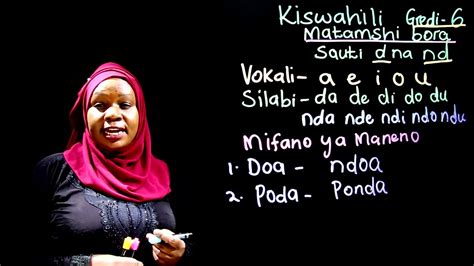 Kiswahili Gredi-6
Matamshi bora
Sauti d na nd
Vokali- a e i o u
Silabi- da de di do du
nda nde ndi ndo ndu
Mifano ya Maneno
1. Doa - ndoa
2. Poda - Ponda